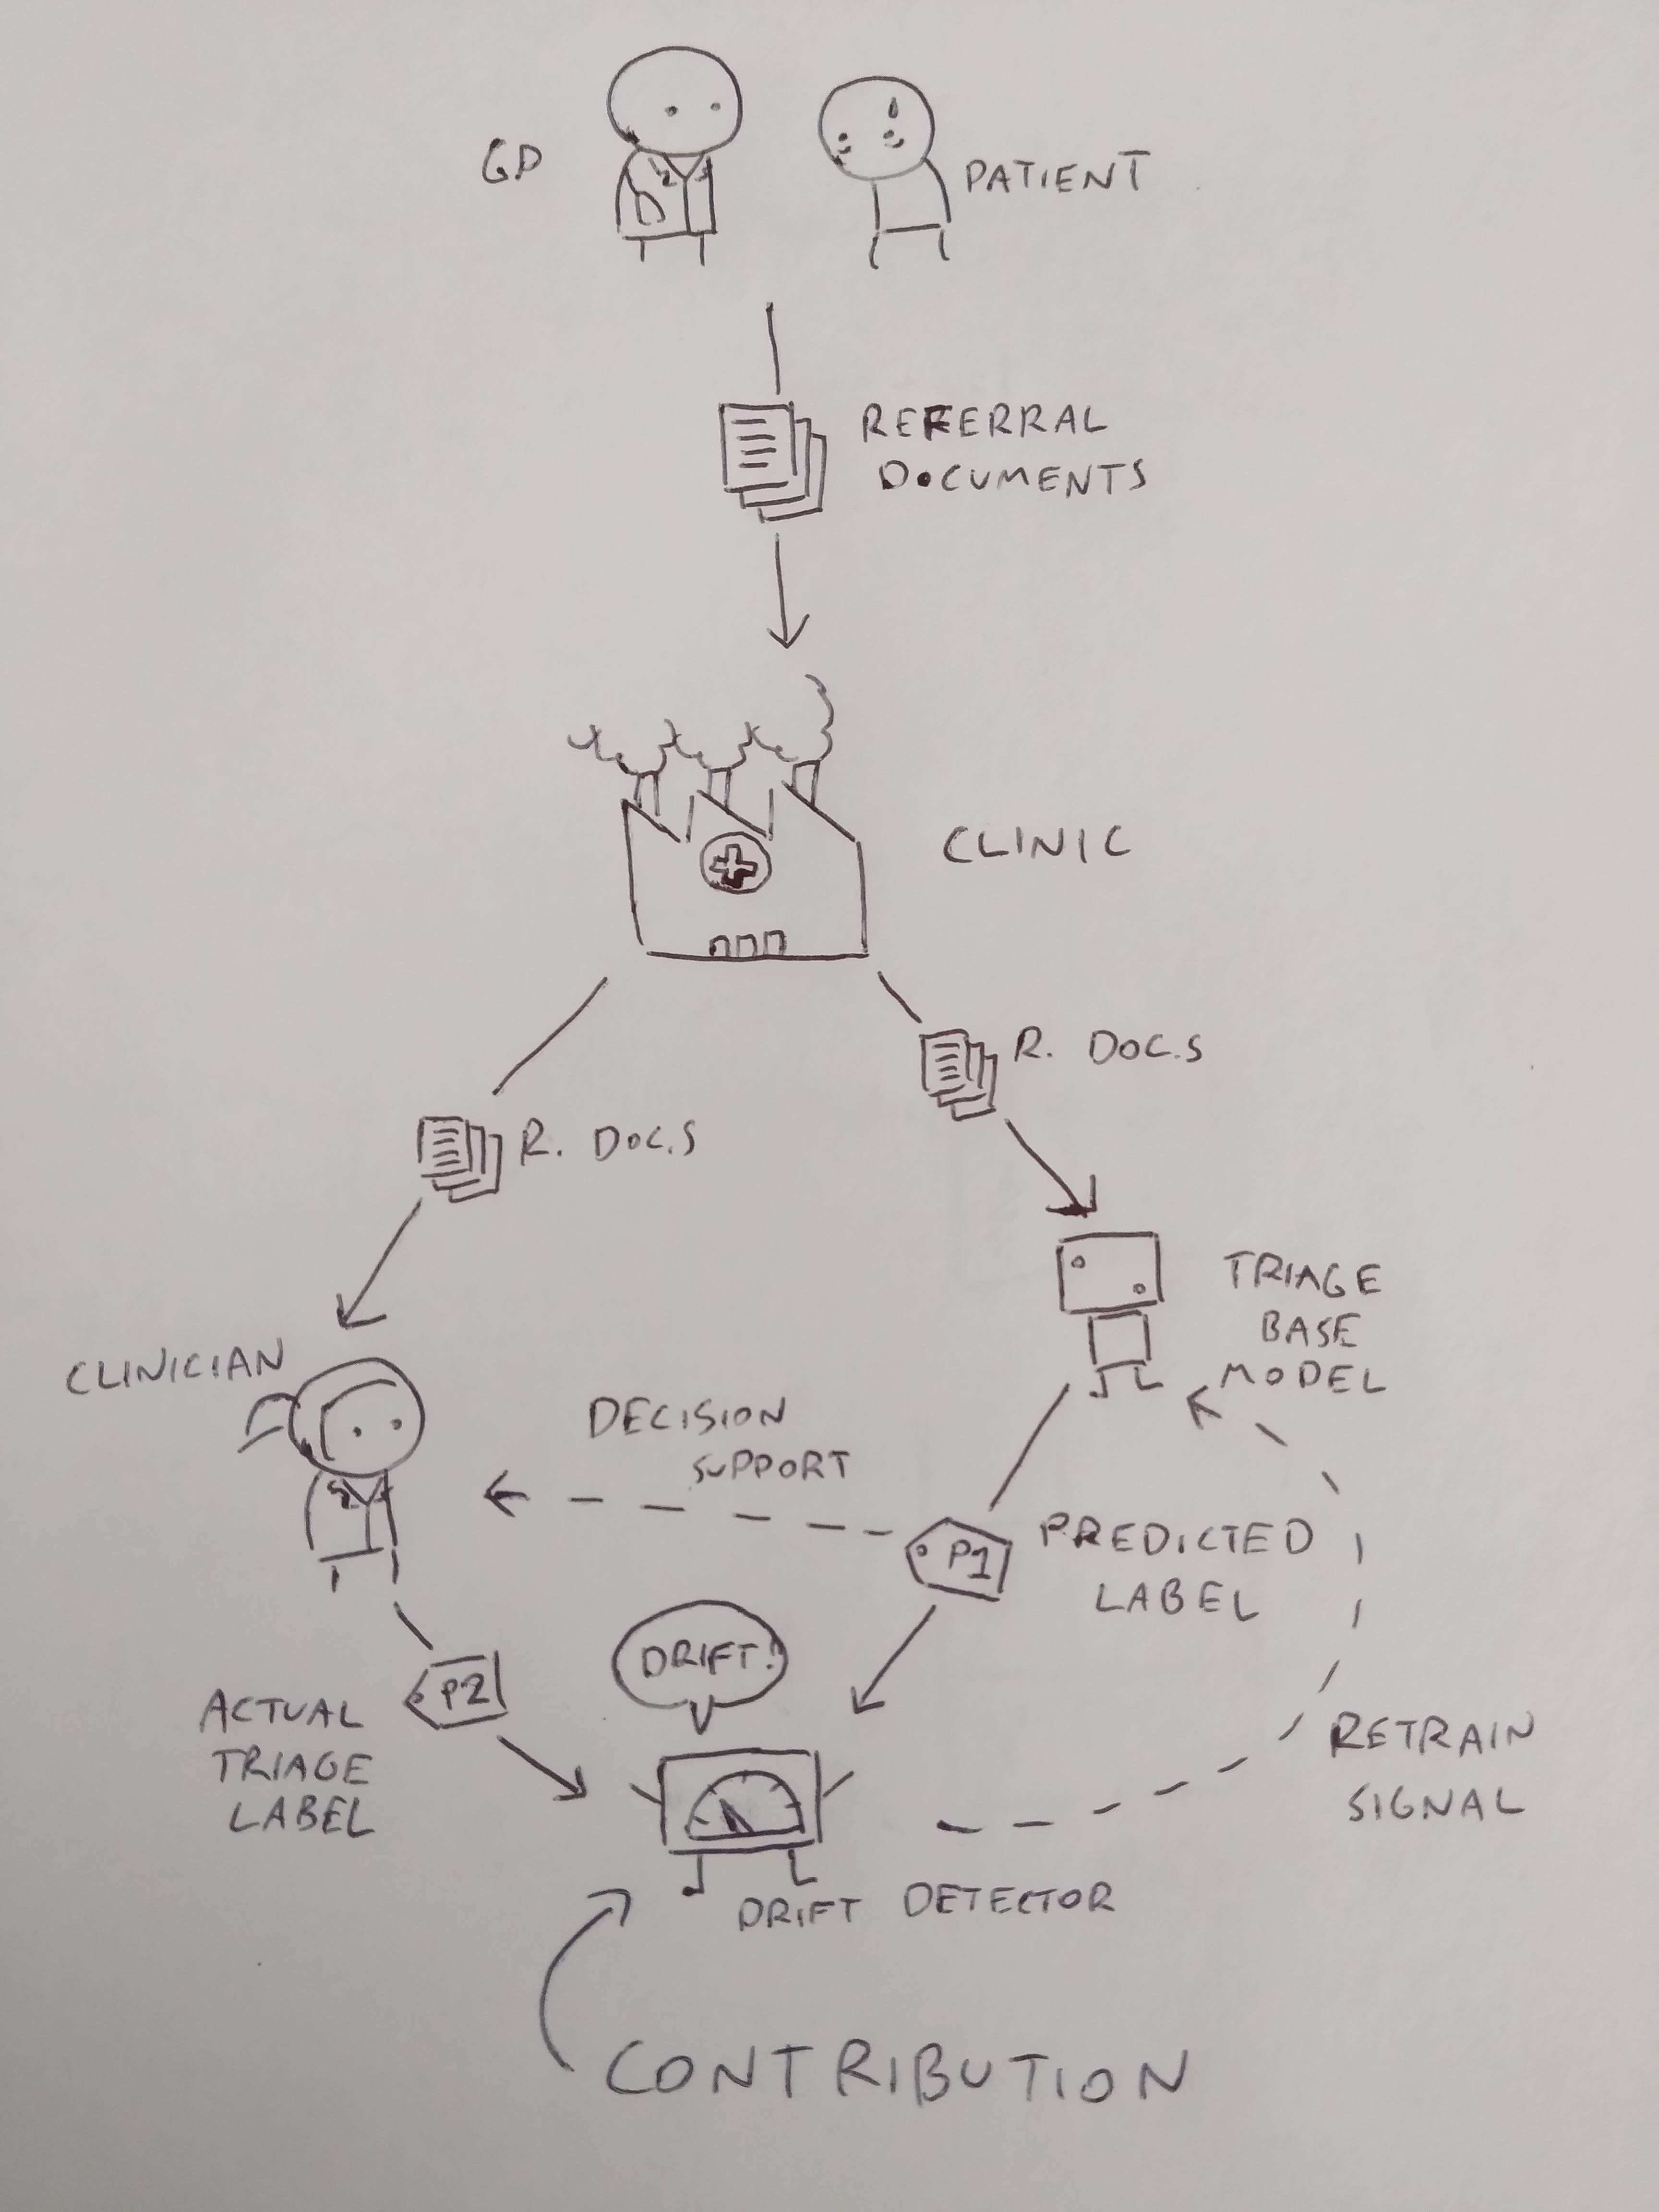 GP
PATIENT
REFERRAL
DOCUMENTS
CLINIC
R. DOC.S
R. DOC.S
TRIAGE
BASE
MODEL
CLINICIAN
DECISION
SUPPORT
P1
PREDICTED
LABEL
DRIFT!
P2
ACTUAL
TRIAGE
LABEL
RETRAIN
SIGNAL
DRIFT DETECTOR
CONTRIBUTION